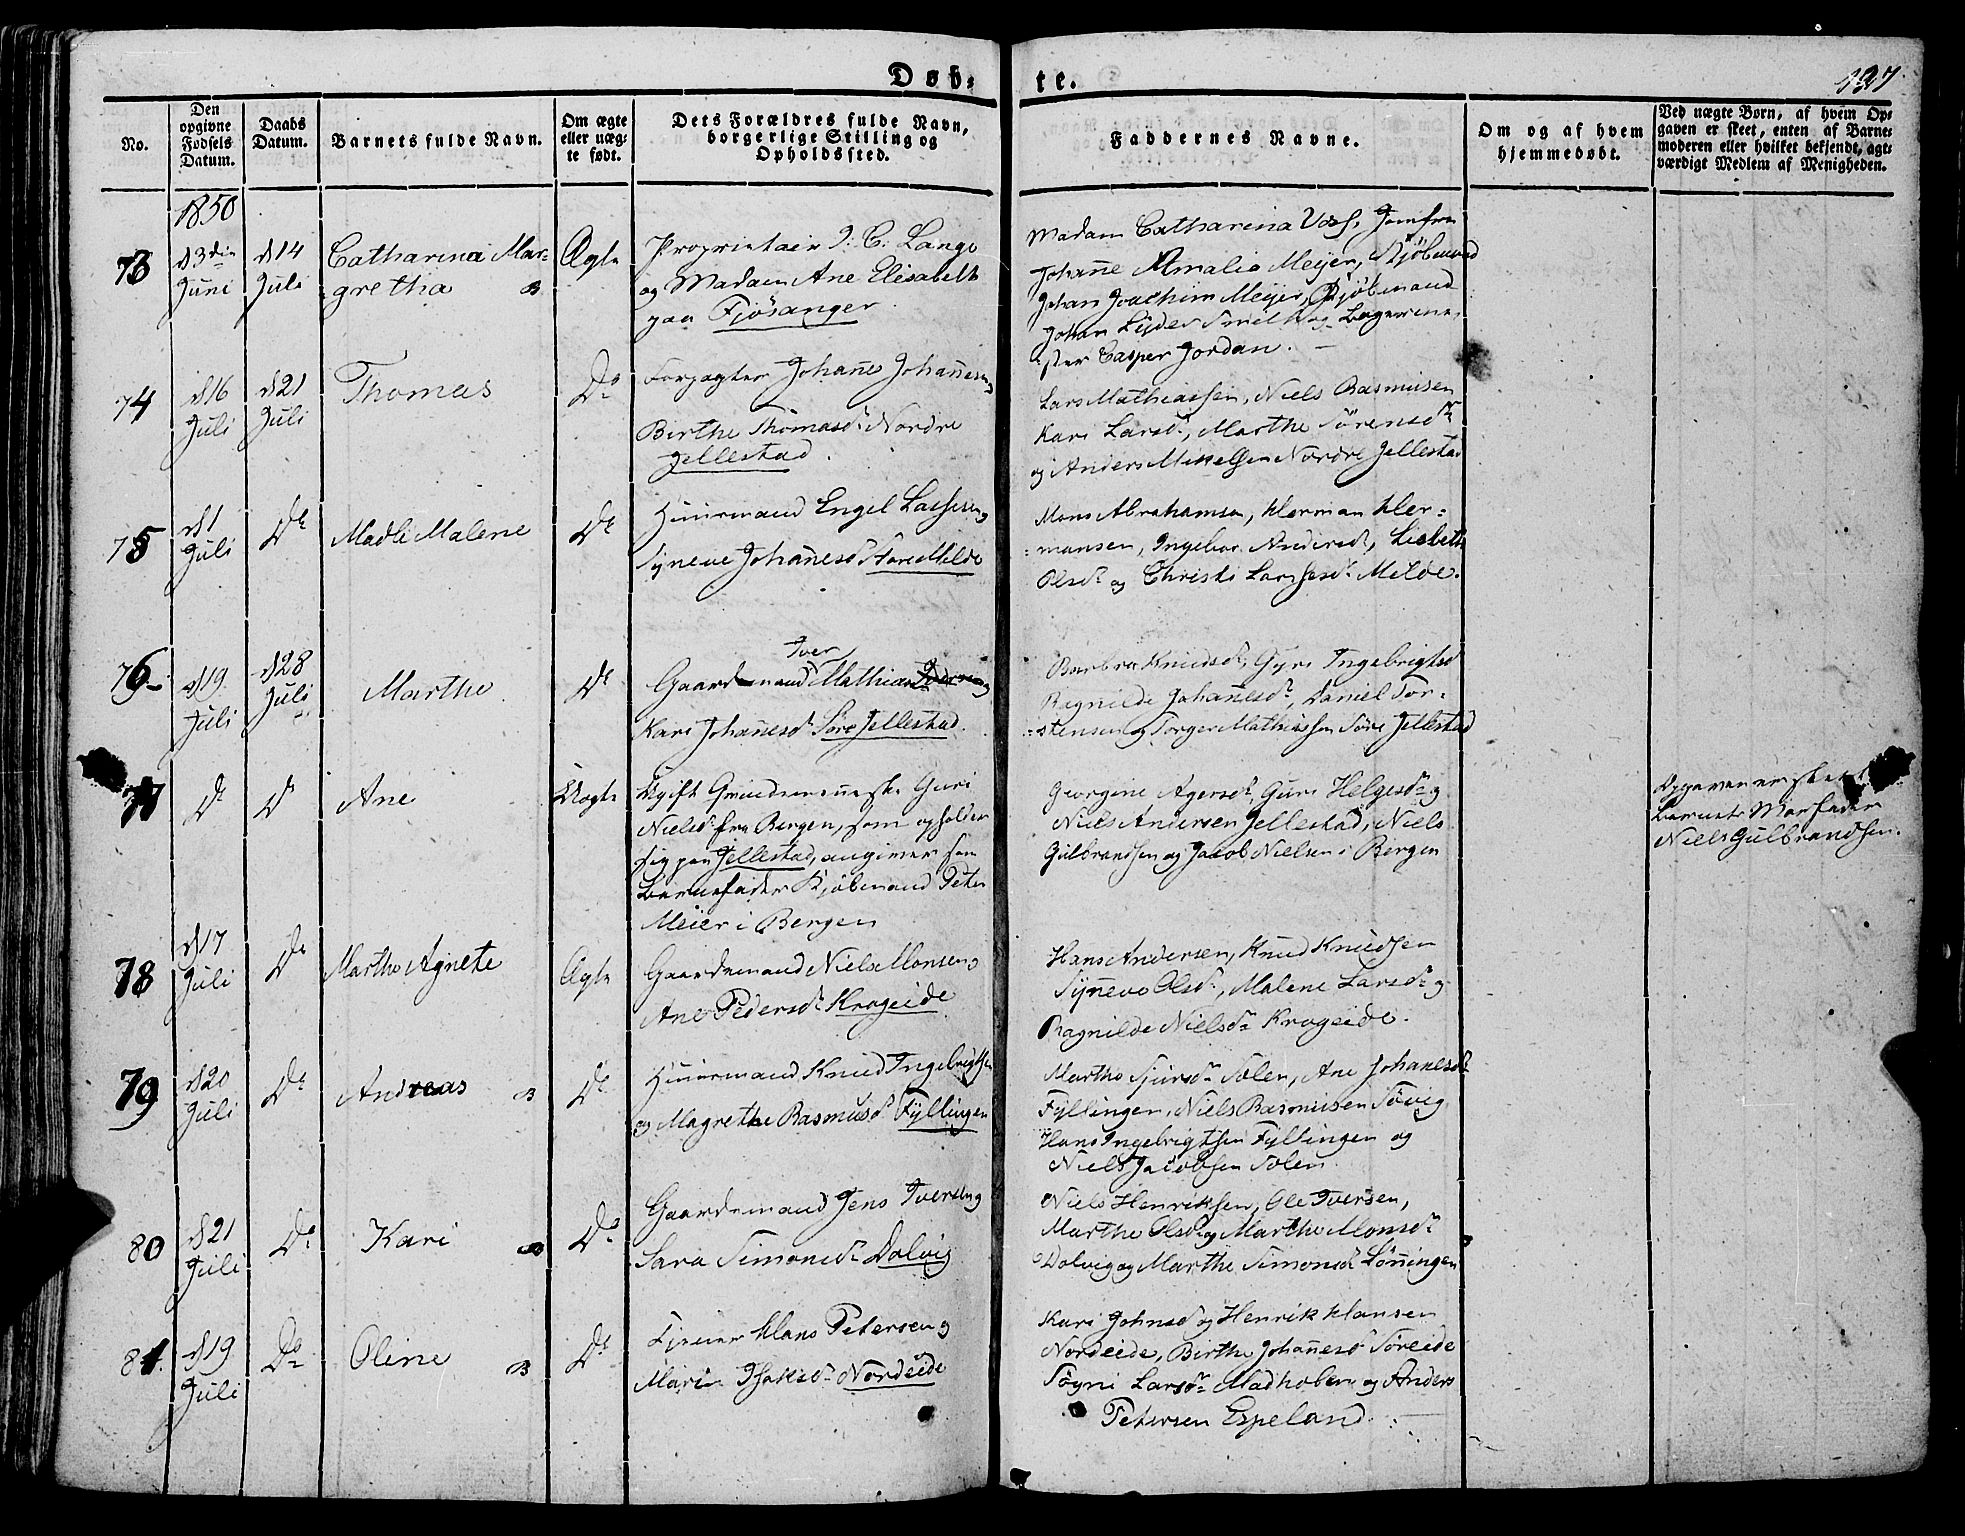 Døb-te.
127
No.
Den opgivne Fødsels Datum.
Daabs Datum.
Barnets fulde Navn.
Om ægte eller uægte født.
Dets Forældres fulde Navn, borgerlige Stilling og Opholdssted.
Faddernes Navne.
Om og af hvem hjemmedøbt.
Ved uægte Børn, af hvem Opgaven er skeet, enten af Barnemoderen eller hvilket bekjendt, agtværdigt Medlem af Menigheden.
1850
73
d 3die Juni
d 14 Juli
Catharina Mar=
gretha
Ægte
Proprietair J: C: Lange
og Madam Ane Elisabeth
paa Fjøsanger
Madam Catharina Jomfru
Johanne Amalia Meijer, Kjøbmand
Johan Joachim Meijer, Kjøbmand
Johan Lyder og Bagerme=
ster Casper Jordan.
74
d 16 Juli
d 21 Juli
Thomas
Do
Forpagter Johannes Johannesen og
Birthe Thomasd. Nordre
Jellestad.
Lars Mathiassen, Niels Rasmusen
Kari Larsd., Marthe Sørensdr
og Anders Mikkelsen Nordre Jellestad
75
d 1 Juli
Do
Madli Malene
Do
Huusmand Engel Lassesen og
Synneve Johannesd. Store Milde
Mons Abrahamsen, Herman Her=
=mansen, Ingebor Andersd, Lisbeth
Olsd. og Christi Larssesd. Milde.
76
d 19 Juli
d 28 Juli
Marthe
Do
Iver
Gaardemand Mathias og
Kari Johannesd. Søre Jellestad.
Barbra Knudsd, Gyri Ingebrigtsd
Ragnilde Johannesd., Daniel Tor=
=stensen og Torger Mathiassen Søre Jellestad
77
Do
Do
Ane
Uægte
Ugift Qvindemenneske Guri
Nielsd. fra Bergen, som opholder
sig paa Jellestad, angiver som
Barnefader Kjøbmand Peter
Meier i Bergen
Georgine Agersd., Guri Helgesdr og
Niels Andersen Jellestad, Niels
Gulbrandsen og Jacob Nielsen i Bergen
Opgaven er skeet
Barnets Morfader
Niels Gulbrandsen.
78
d 17 Juli
Do
Marthe Agnete
Ægte
Gaardemand Niels Monsen og
Ane Pedersd. Krogeide
Hans Andersen, Knud Knudsen
Synneve Olsd., Malene Larsdr og
Ragnilde Nielsdr Krogeide.
79
d 20 Juli
Do
Andreas
Do
Huusmand Knud Ingebrigtsen
og Magrethe Rasmusd. Fyllingen
Marthe Sjursdr Solen, Ane Johanesdr
Fyllingen, Niels Rasmusen Søvig
Hans Ingebrigtsen Fyllingen og
Niels Jacobsen Solen.
80
d 21 Juli
Do
Kari
Do
Gaardemand Jens Iversen og
Sara Simonsdr Dolvig
Niels Henriksen, Ole Iversen,
Marthe Olsd. og Marthe Monsdr
Dolvig og Marthe Simonsd. Lønningen
81.
d 19 Juli
Do
Oline
Do
Hans Petersen og
Mari Isaksdr Nordeide
Kari Johnsd og Henrik Hansen
Nordeide, Birthe Johannesd. Søreide
Søgni Larsdr og Anders
Petersen Espeland.